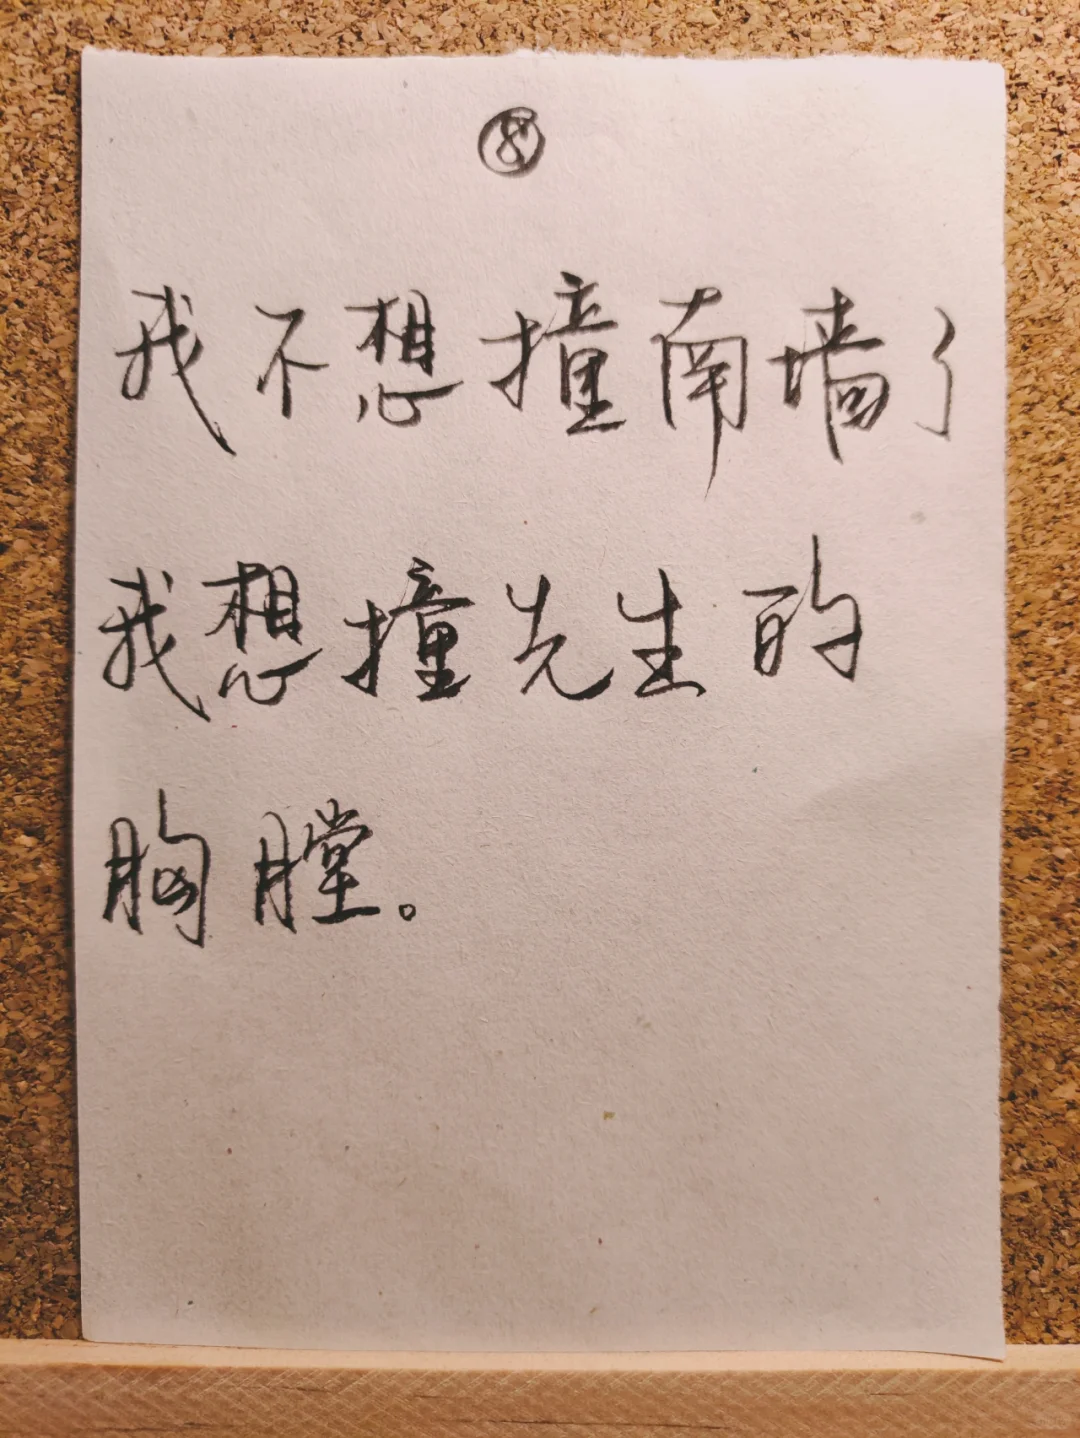 ⑧
我不想撞南墙了
我想撞先生的
胸膛。